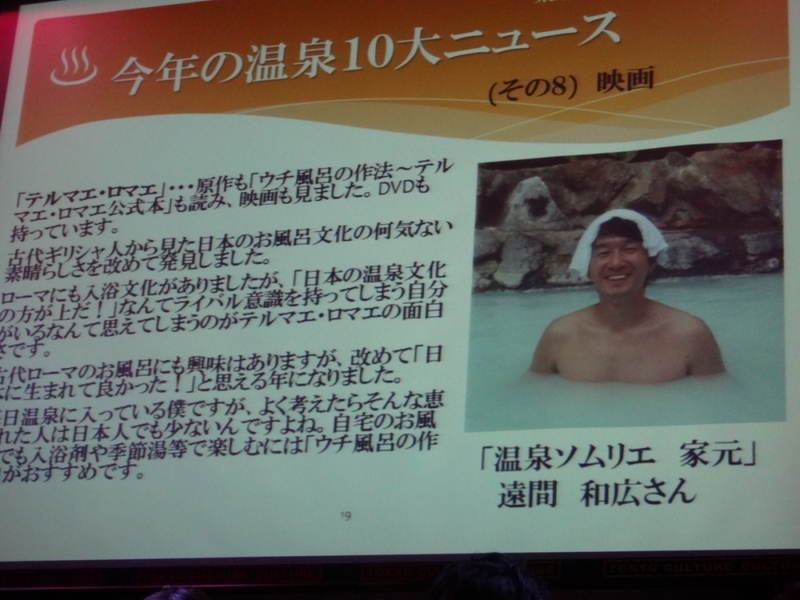 今年の温泉10大ニュース
(その8) 映画
「テルマエ・ロマエ」・・・原作も「ウチ風呂の作法〜テル
マエ・ロマエ公式本」も読み、映画も見ました。DVDも
持っています。
古代ギリシャ人から見た日本のお風呂文化の何気ない
素晴らしさを改めて発見しました。
ローマにも入浴文化がありましたが、「日本の温泉文化
の方が上だ！」なんてライバル意識を持ってしまう自分
がいるなんて思えてしまうのがテルマエ・ロマエの面白
さです。
古代ローマのお風呂にも興味はありますが、改めて「日
本に生まれて良かった！」と思える年になりました。
日温泉に入っている僕ですが、よく考えたらそんな恵
れた人は日本人でも少ないんですよね。自宅のお風
でも入浴剤や季節湯等で楽しむには「ウチ風呂の作
がおすすめです。
「温泉ソムリエ 家元」
遠間 和広さん
19
TOKYO CULTURE CULTURE